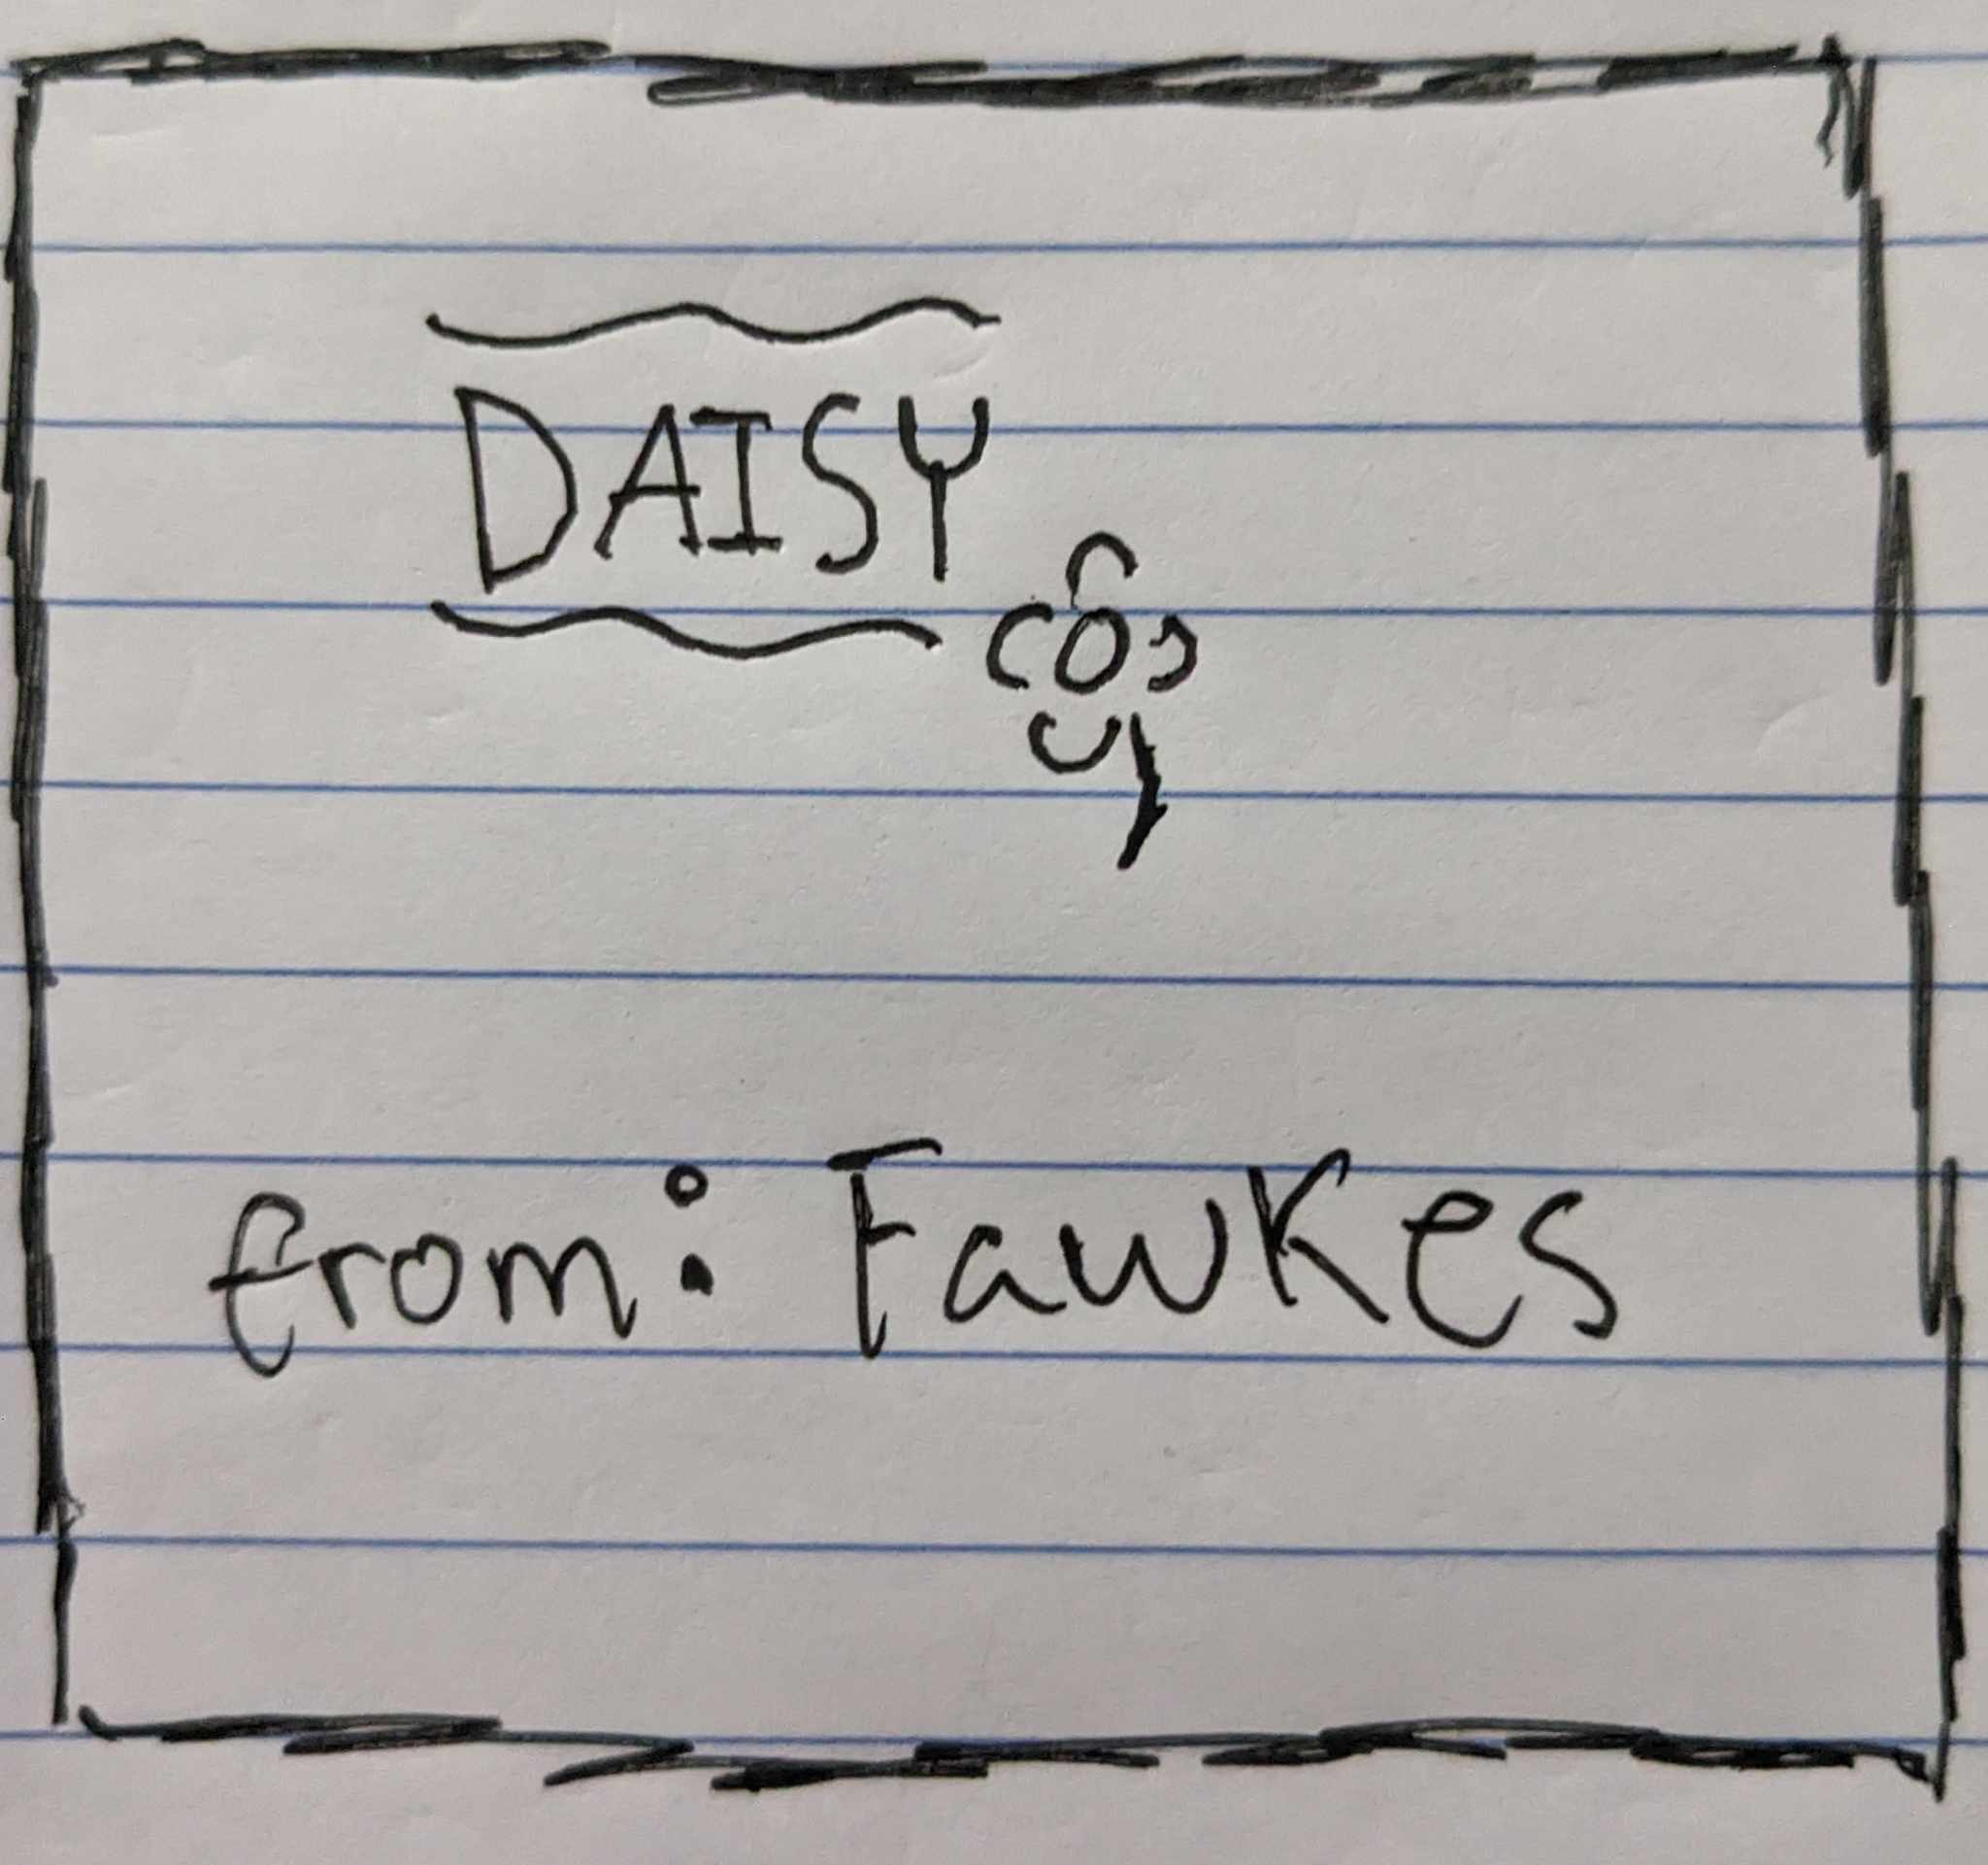 DAISY
from: Fawkes